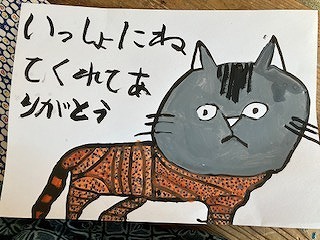 いっしょにね
てくれてあ
りがとう